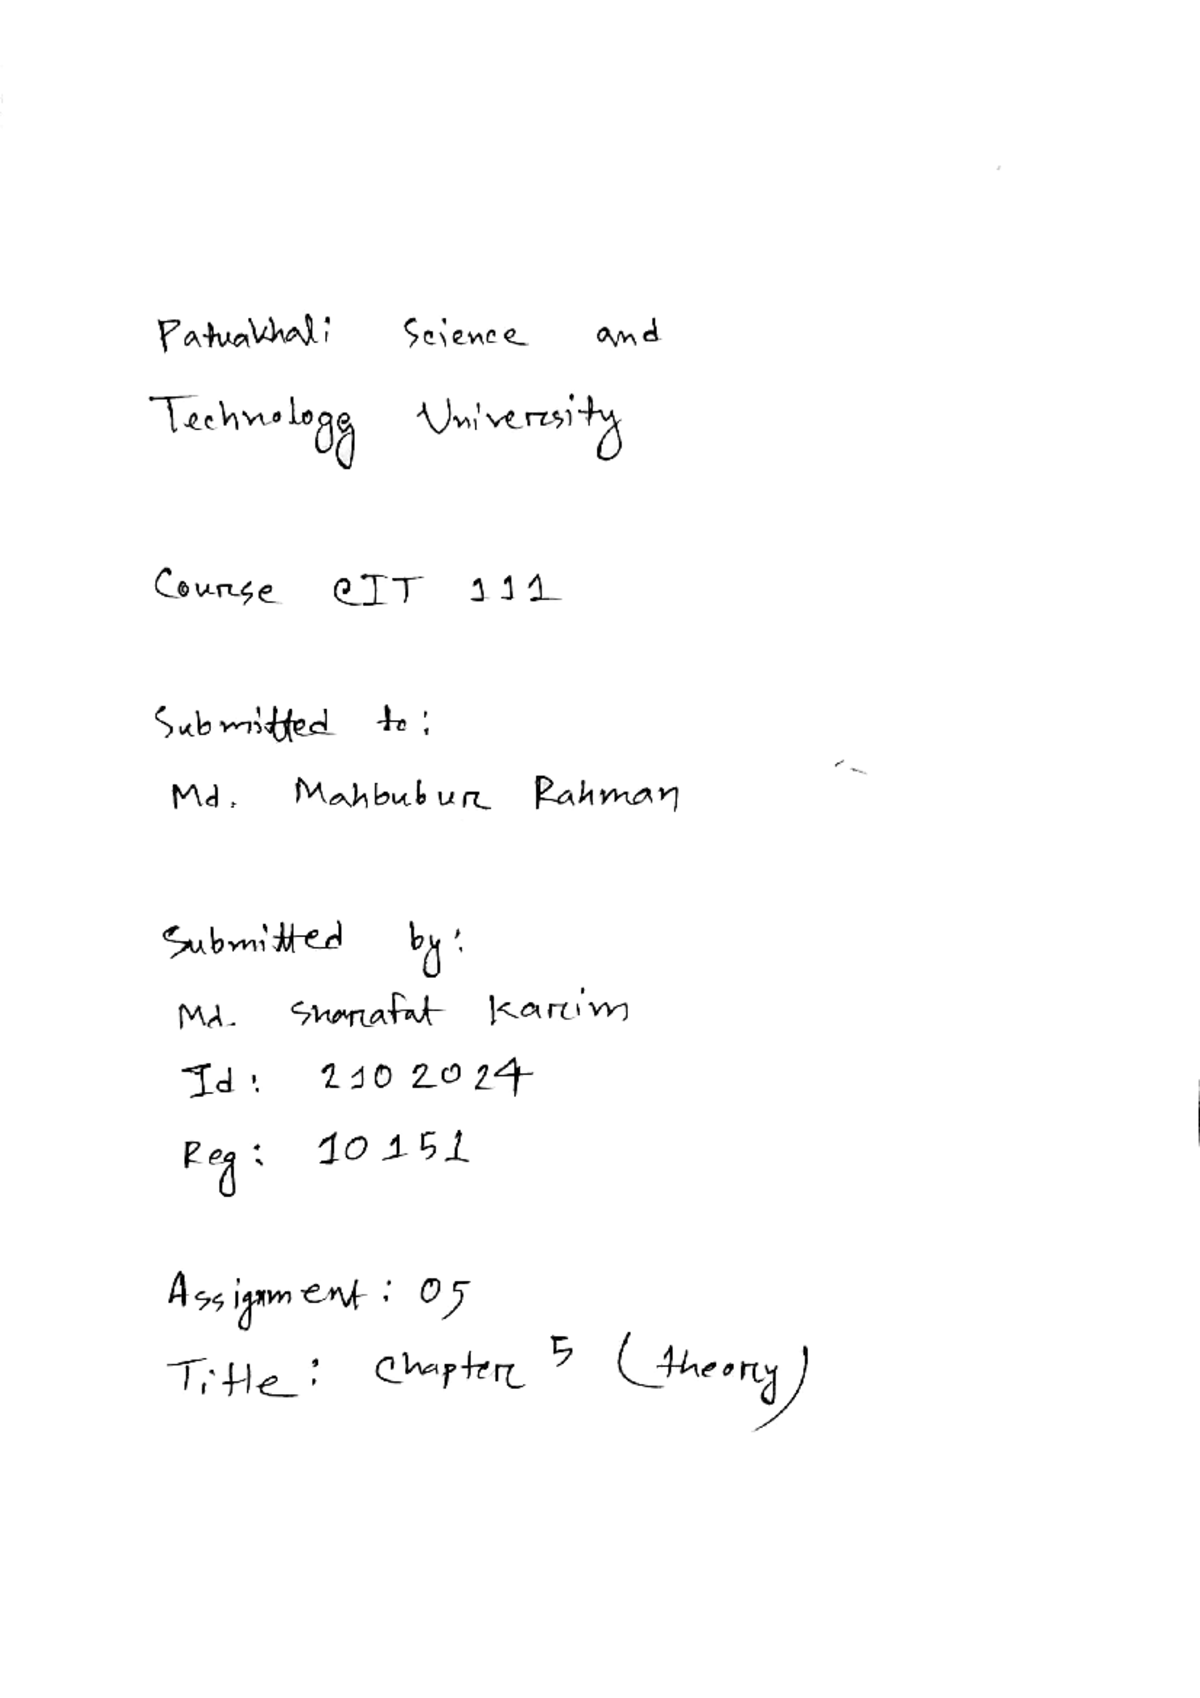 Patuakhali Science and
Technology University
Course CIT 111
Submitted to:
Md. Mahbubur Rahman
Submitted by:
Md. Sharafat Karim
Id: 2102024
Reg: 10151
Assignment: 05
Title: Chapter 5 (theory)